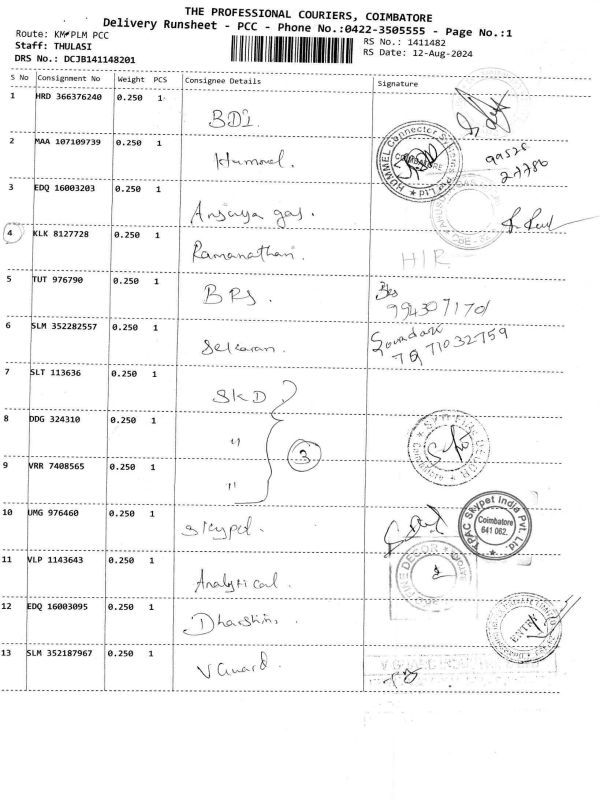 THE PROFESSIONAL COURIERS, COIMBATORE
Delivery Runsheet - PCC - Phone No.:0422-3505555 - Page No.:1
Route: KM PLM PCC
RS No.: 1411482
Staff: THULASI
RS Date: 12-Aug-2024
DRS No.: DCJB141148201
S No Consignment No Weight PCS Consignee Details Signature
1 HRD 366376240 0.250 1
BDI
2 MAA 107109739 0.250 1
Hummel.
HOMMEL Connector Pvt Ltd
99526
27786
3 EDQ 16003203 0.250 1
Anjaya gas.
4 KLK 8127728 0.250 1
Ramanathan
HIR
5 TUT 976790 0.250 1
BRS.
6 SLM 352282557 0.250 1
Sekaran.
7 SLT 113636 0.250 1
SKD
8 DDG 324310 0.250 1
"
3
9 VRR 7408565 0.250 1
"
10 UMG 976460 0.250 1
Skypet.
TPAC Skypet India Pvt. Ltd.
Coimbatore
641 062.
11 VLP 1143643 0.250 1
Analytical.
12 EDQ 16003095 0.250 1
Dharshini
ENTRY
13 SLM 352187967 0.250 1
V Guard.